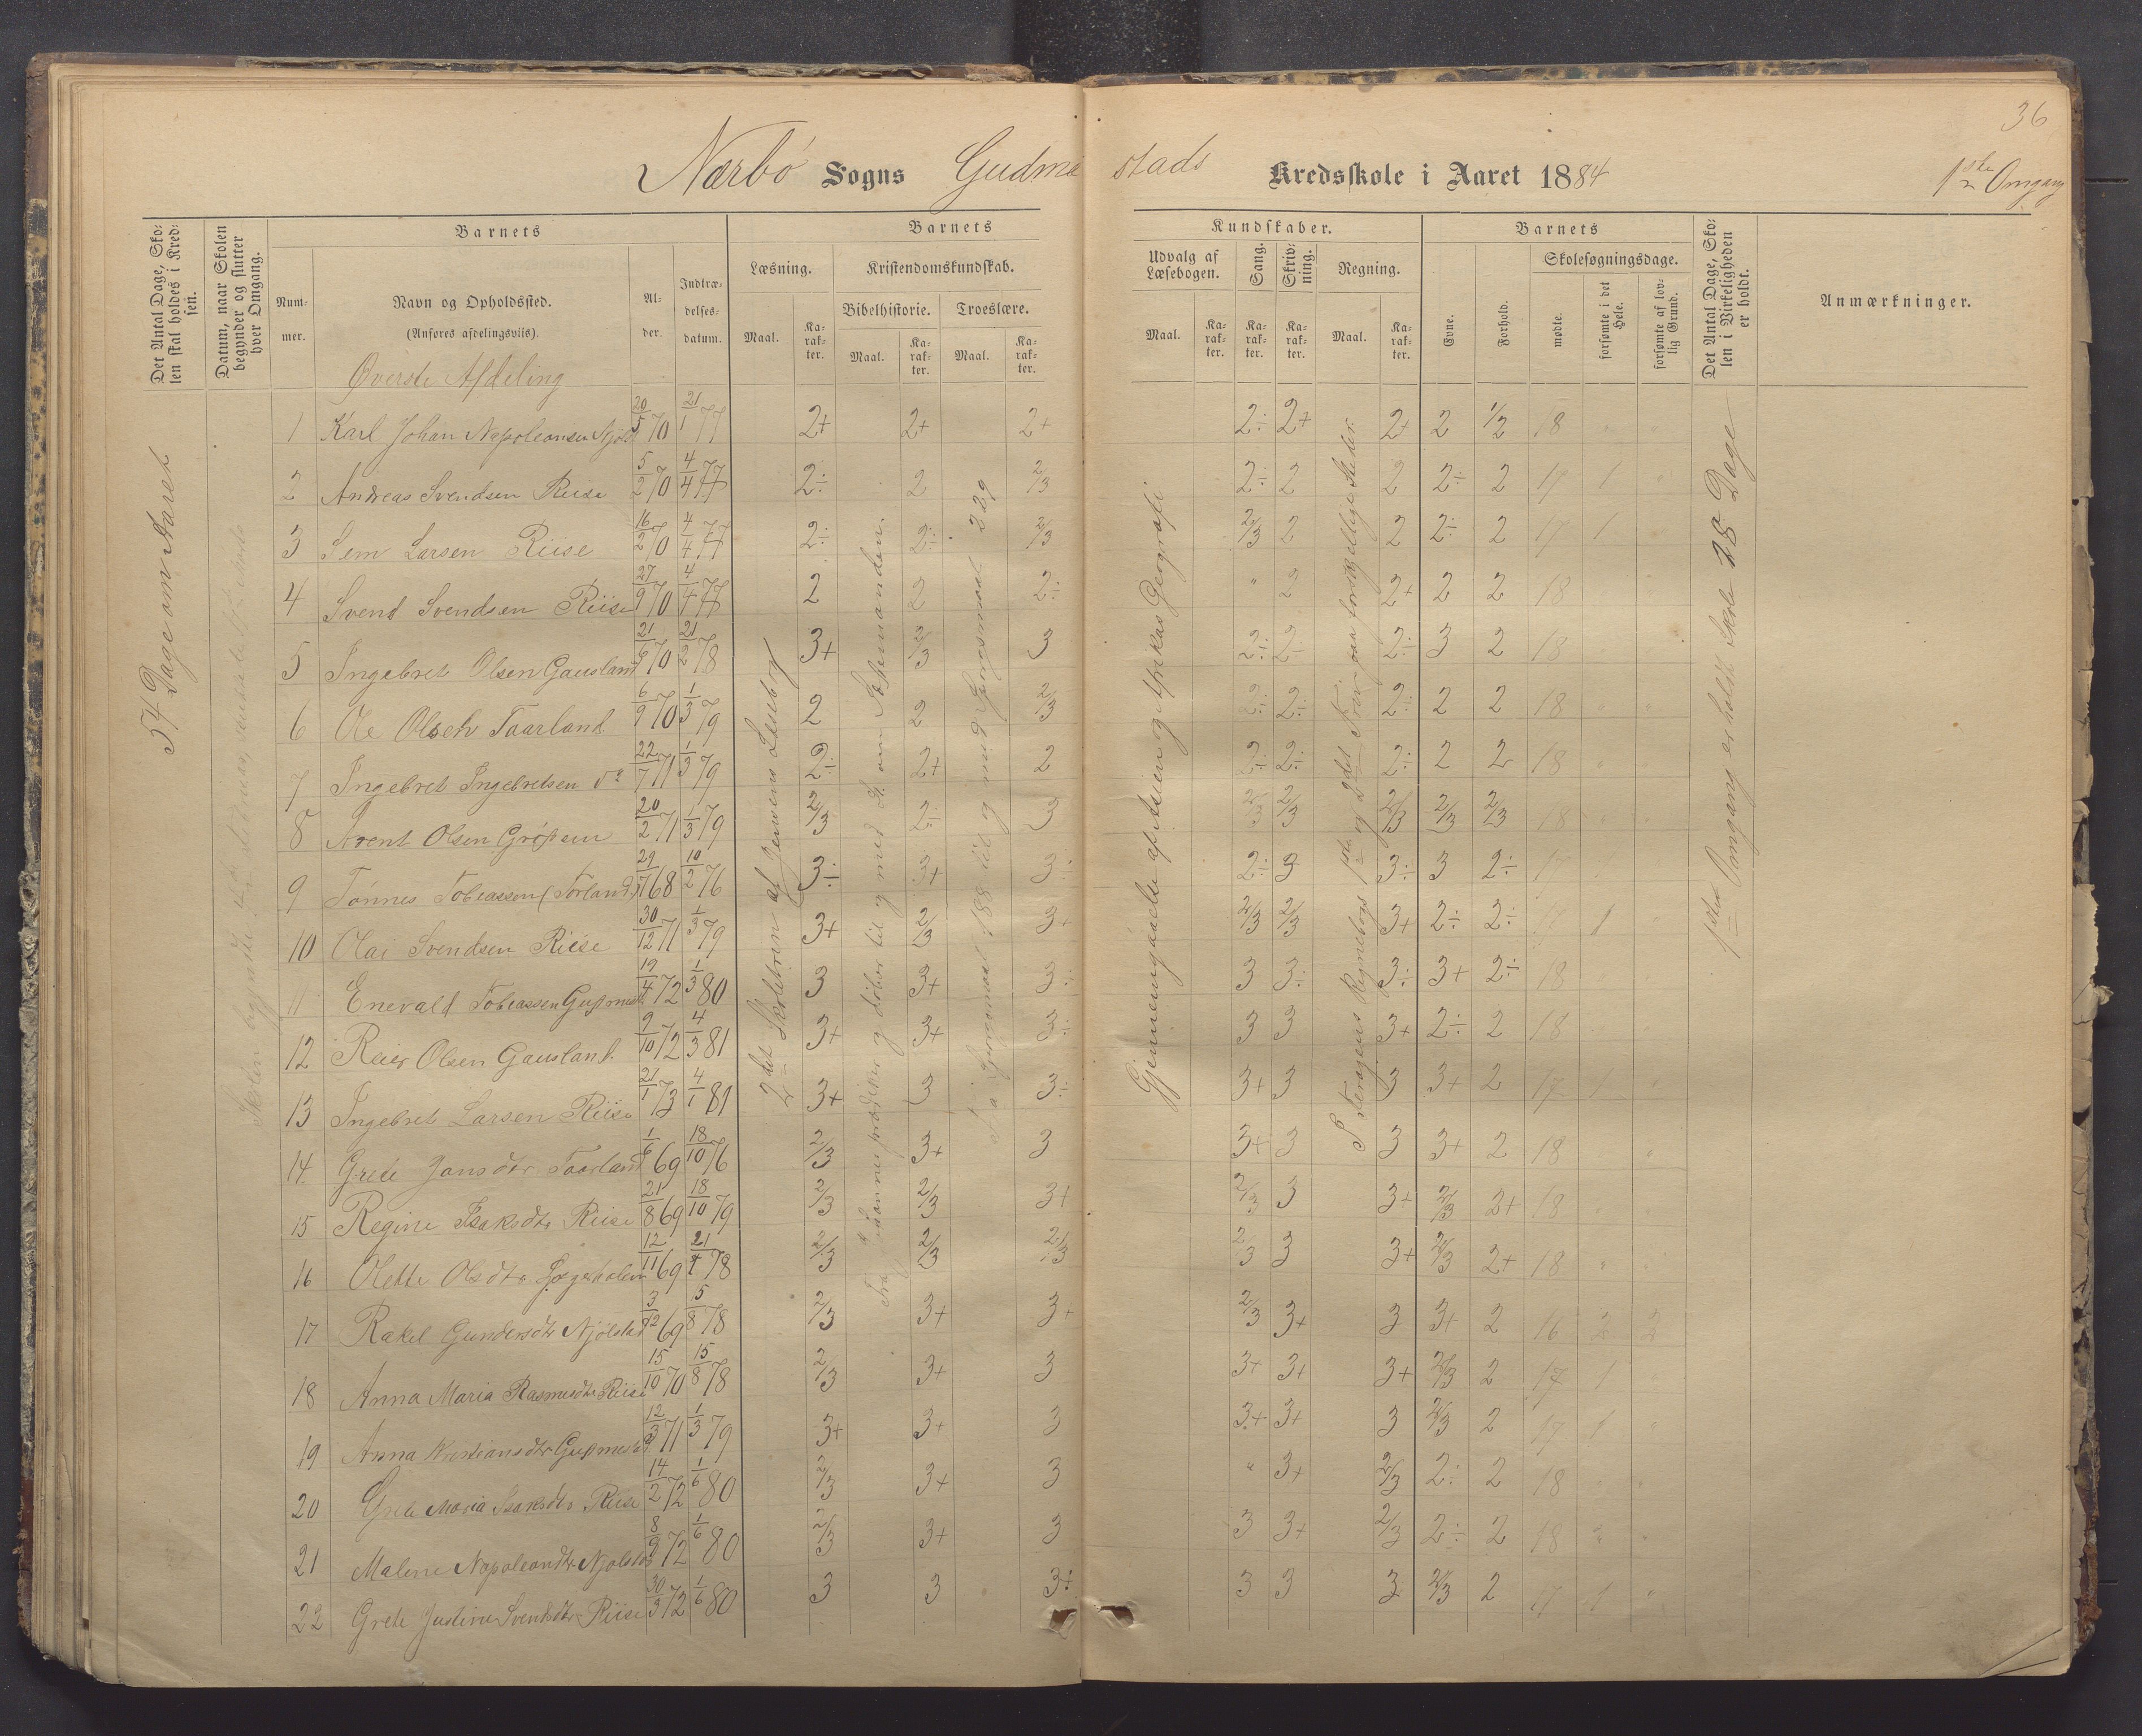 36
Nærbö Sogns Gudme stads Kredsskole i Aaret 1884
1ste Omgang
Det Antal Dage, Skolen skal holdes i Kredsen.
Datum, naar Skolen begynder og slutter hver Omgang.
Barnets
Nummer.
Navn og Opholdssted.
(Anføres afdelingsviis).
Alder.
Indtrædelsesdatum.
Barnets
Læsning.
Maal.
Karakter.
Kristendomskundskab.
Bibelhistorie.
Maal.
Karakter.
Troeslære.
Maal.
Karakter.
Kundskaber.
Udvalg af Læsebogen.
Maal.
Karakter.
Sang.
Karakter.
Skrivning.
Karakter.
Regning.
Maal.
Karakter.
Barnets
Evne.
Forhold.
Skolesøgningsdage.
mødte.
forsømte i det Hele.
forsømte af lovlig Grund.
Det Antal Dage, Skolen i Virkeligheden er holdt.
Anmærkninger.
Øverste Afdeling
54 Dage om Aaret
2det Skoletrin af Jensens Læsebog
Gjennemgaaelse af Asien og Afrikas Geografi
1 Karl Johan Napoleonsen Njølst 20/5 70 21/1 77 2+ 2+ 2+ 2÷ 2+ 2+ 2 1/2 18
2 Andreas Svendsen Riise 5/2 70 4/4 77 2÷ 2 2/3 2÷ 2 2 2÷ 2 17 1
3 Sem Larsen Riise 16/2 70 4/4 77 2÷ 2÷ 2/3 2/3 2 2 2÷ 2 17 1
4 Svend Svendsen Riise 27/9 70 4/4 77 2 2 2÷ " 2 2+ 2 2 18
5 Ingebret Olsen Gausland 21/6 70 21/2 78 3+ 2/3 3 2÷ 2÷ 2÷ 3 2 18
6 Ole Olsen Taarland 6/9 70 1/3 79 2 2 2/3 2÷ 2÷ 2÷ 2 2 18 " "
7 Ingebret Ingebretsen do 22/7 71 1/3 79 2÷ 2+ 2 2÷ 2÷ 2÷ 2 2 18 "
8 Arent Olsen Grøsem 20/2 71 1/3 79 2/3 2÷ 3 2/3 2/3 2/3 2/3 2/3 18
9 Tønnes Tobiassen (Torland) 29/7 68 10/2 76 3÷ 3+ 3÷ 2÷ 3 3÷ 3 2÷ 17
10 Olai Svendsen Riise 30/12 71 1/3 79 3+ 2/3 3+ 2/3 2/3 3+ 2÷ 2÷ 17 1
11 Enevald Tobiassen 19/4 72 1/3 80 3 3+ 3÷ 3 3÷ 3÷ 3+ 2÷ 18
12 Reier Olsen Gausland 9/10 72 4/3 81 3+ 3+ 3÷ 3 3 3+ 2÷ 2 18
13 Ingebret Larsen Riise 21/1 73 4/1 81 3+ 3 3÷ 3+ 3 3 3+ 2 17 1
14 Grete Jansdtr Taarland 1/6 69 18/10 76 2/3 3+ 3 3+ 3 3 3+ 2 18
15 Regine Isaksdtr Riise 21/8 69 18/10 79 2/3 2/3 3+ 2/3 3 3+ 2/3 2+ 18
16 Olette Olsdtr 12/11 69 21/4 78 2/3 2/3 2/3 2/3 3 3+ 2/3 2+ 18 "
17 Rakel Gundersdtr Njølstad 3/12 69 5/8 78 2/3 3+ 3+ 2/3 3+ 3 3+ 2 16 2 2
18 Anna Maria Rasmusdtr Riise 15/10 70 15/8 78 2/3 3+ 3 3+ 3+ 3+ 2/3 2 17 1
19 Anna Kristiansdtr 12/3 71 1/3 79 3+ 3+ 3 3+ 3+ 3 2/3 2 17 1
20 Grete Maria Isaksdtr Riise 14/2 72 1/6 80 2/3 3+ 3 " 3+ 2/3 2÷ 2 18
21 Malene Napoleondtr Njølstad 8/9 72 1/6 80 2/3 3+ 3 3 3+ 2/3 2÷ 2 18
22 Grete Justine Svendsdtr Riise 30/9 72 1/6 80 3 3 3+ 3 3 3 2/3 2 17 1